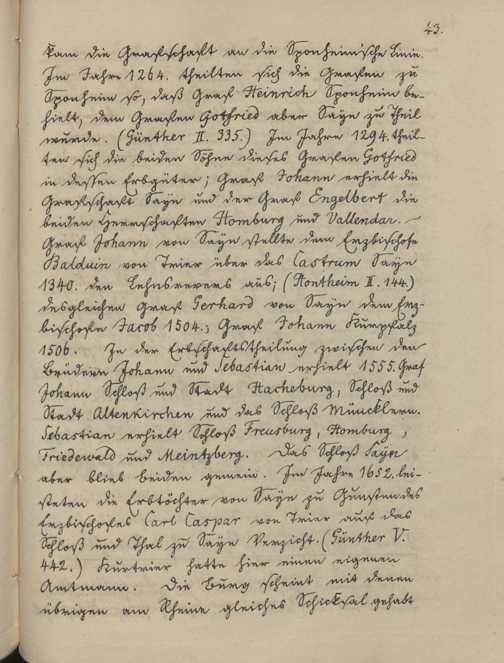 43.
kam die Grafschaft an die Sponheimische Linie.
Im Jahre 1264. theilten sich die Grafen zu
Sponheim so, daß Graf Heinrich Sponheim be-
hielt, dem Grafen Gotfried aber Sayn zu Theil
wurde. (Günther II. 335.) Im Jahre 1294. theil-
ten sich die beiden Söhne dieses Grafen Gotfried
in dessen Erbgüter; Graf Johann erhielt die
Grafschaft Sayn und der Graf Engelbert die
beiden Herrschaften Homburg und Vallendar. —
Graf Johann von Sayn stellte dem Erzbischofe
Balduin von Trier über das Castrum Sayn
1340. den Lehnsrevers aus; (Hontheim II. 144.)
desgleichen Graf Gerhard von Sayn dem Erz-
bischofe Jacob 1504.; Graf Johann Kurpfalz
1506. In der Erbschaftstheilung zwischen den
Brüdern Johann und Sebastian erhielt 1555. Graf
Johann Schloß und Stadt Hacheburg, Schloß und
Stadt Altenkirchen und das Schloß Müncklern.
Sebastian erhielt Schloß Freusburg, Homburg,
Friedewald und Meintzberg. Das Schloß Sayn
aber blieb beiden gemein. Im Jahre 1652. lei-
steten die Erbtöchter von Sayn zu Gunsten des
Erzbischofes Carl Caspar von Trier auf das
Schloß und Thal zu Sayn Verzicht. (Günther V.
442.) Kurtrier hatte hier einen eigenen
Amtmann. Die Burg scheint mit denen
übrigen am Rheine gleiches Schicksal gehabt